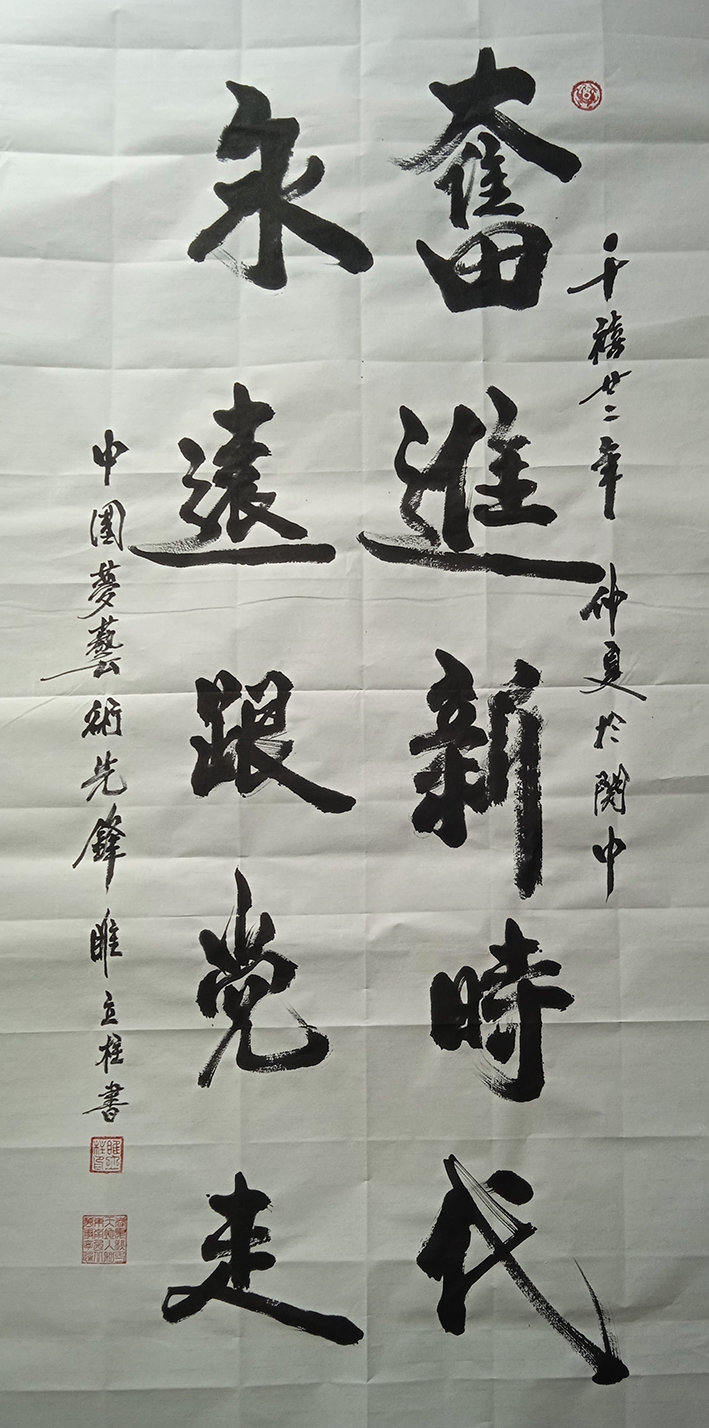 千禧廿二年 仲夏於関中
奮進新時代
永遠跟党走
中國夢藝術先鋒 睢立桂書